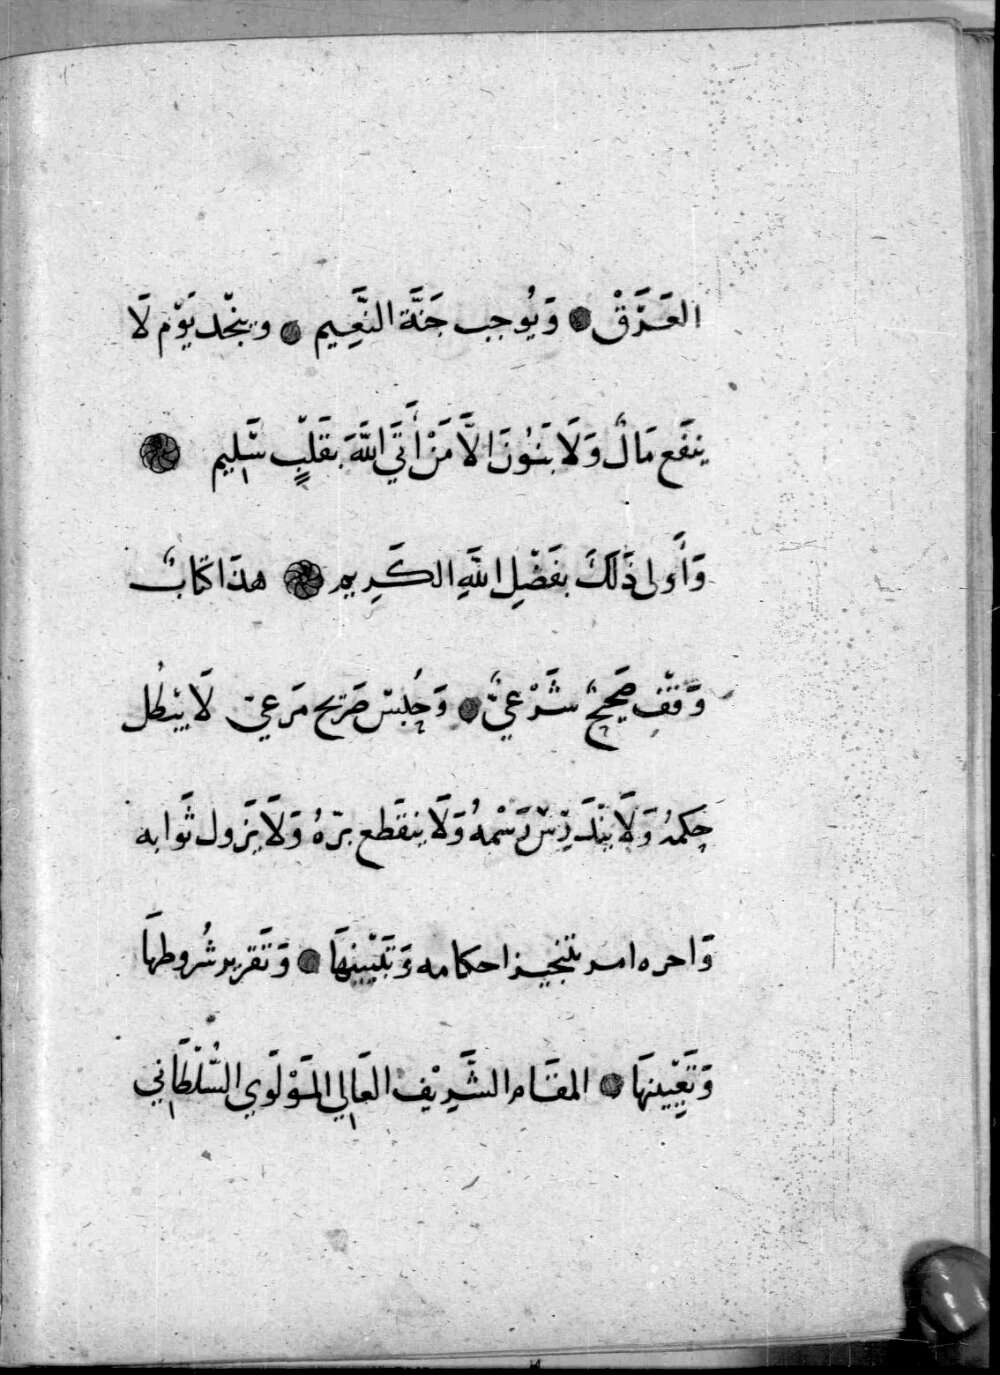 العَزَقْ ۞ وَيُوجب جَنَّة النَّعِيم ۞ وينجّد يَوْم لَا
ينفَع مَالٌ وَلَا بَنُونَ الَّا مَنْ أَتَى اللَّهَ بقَلْبٍ سَلِيم ۞
وَأَولى ذَلكَ بفَضْلِ اللَّهِ الكَرِيم ۞ هذَا كتَابُ
وَقفٍ صَحِيحٌ شَرْعيٌّ ۞ وَحُبسٌ صَريح مَرعيّ لَا يبْطُل
حكمهُ وَلَا يندَرِسْ رَسْمهُ وَلَا ينقَطع برّهُ وَلَا يَزَول ثَوابه
وَاحره امر بتنجيز احكامه وَتَبْيينهَا ۞ وَتَقرير شُروطهَا
وَتَعْيينهَا ۞ المقَام الشَّرِيْف العَالِي المَوْلَوي السُّلْطَاني